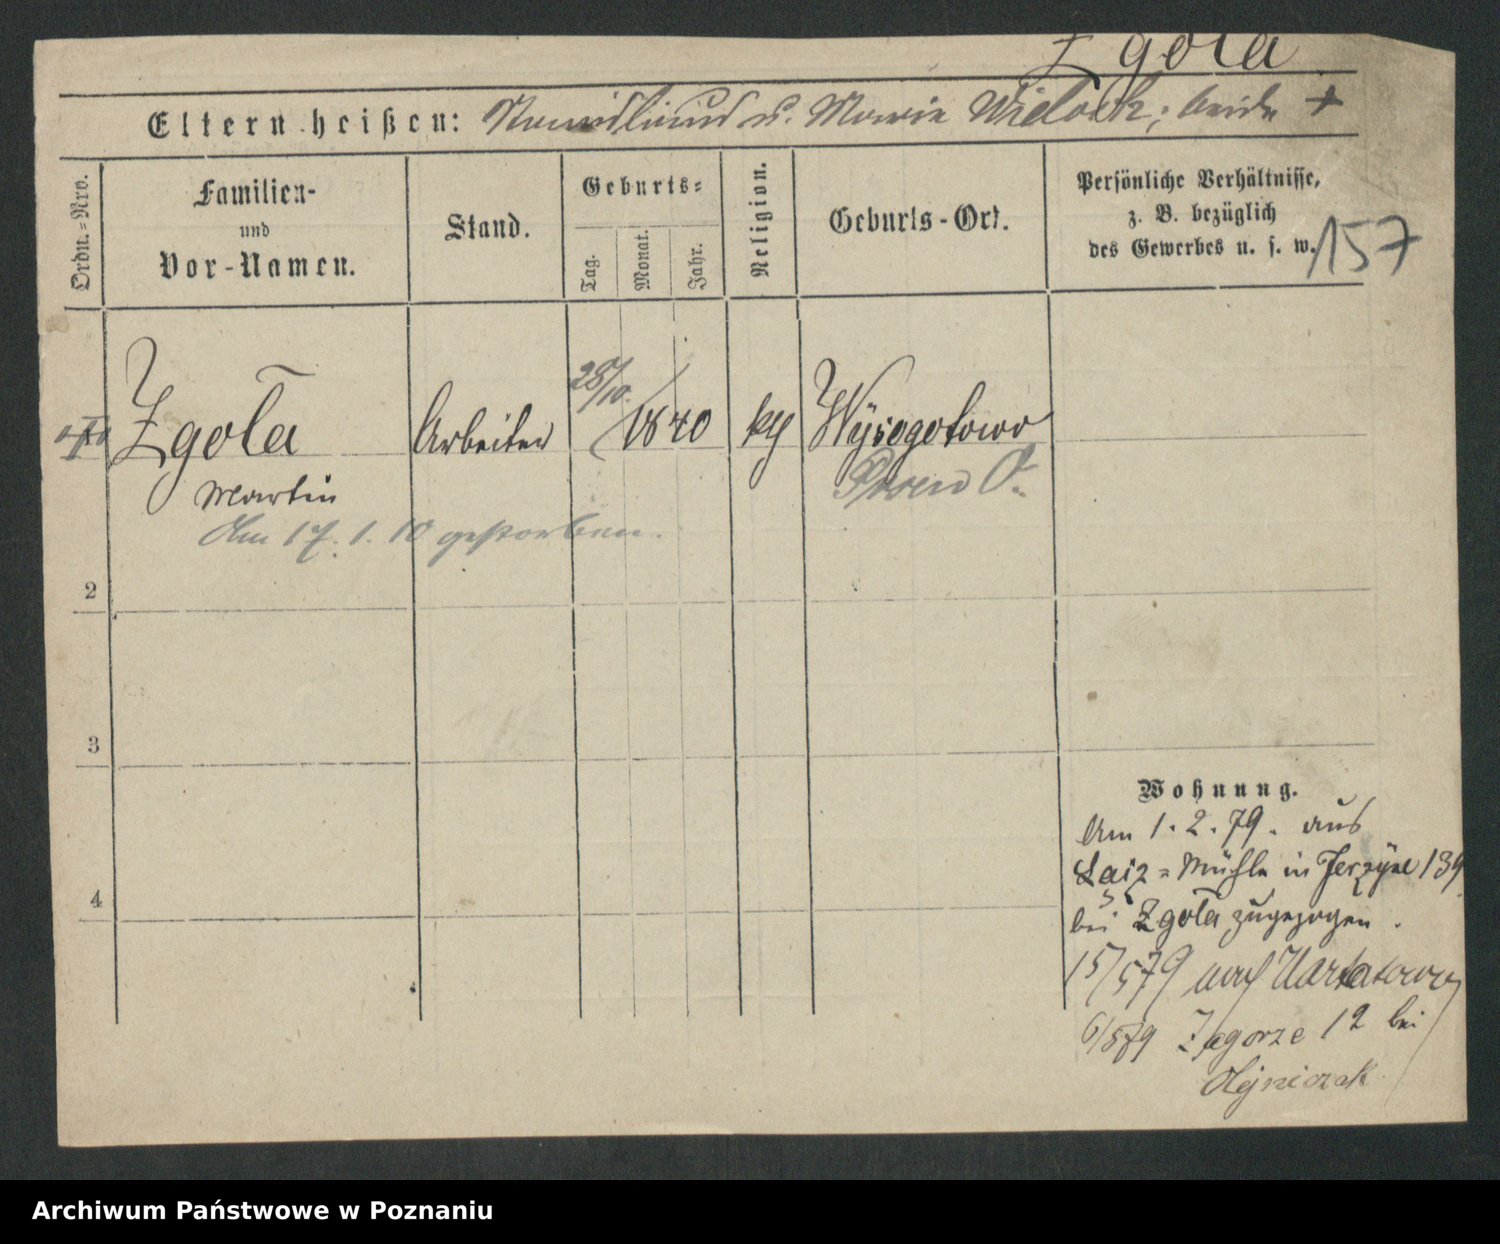 Zgoła
Eltern heißen: u. Marie Wieloch; beide +
Ordn.=Nro.
Familien-
und
Vor-Namen.
Stand.
Geburts=
Tag.
Monat.
Jahr.
Religion.
Geburts-Ort.
Persönliche Verhältnisse,
z. B. bezüglich
des Gewerbes u. s. w.
157
Zgoła Arbeiter 28/10. 1840 kth Wysogotowo
Martin Posen O.
Am 17. 1. 10 gestorben.
2
3
4
Wohnung.
Am 1. 2. 79. aus
Laiz=Mühle in Jerzyce 139
bei Zgoła zugezogen.
15/5 79 nach
6/5 89 Zagorze 12 bei
Olejniczak
Archiwum Państwowe w Poznaniu